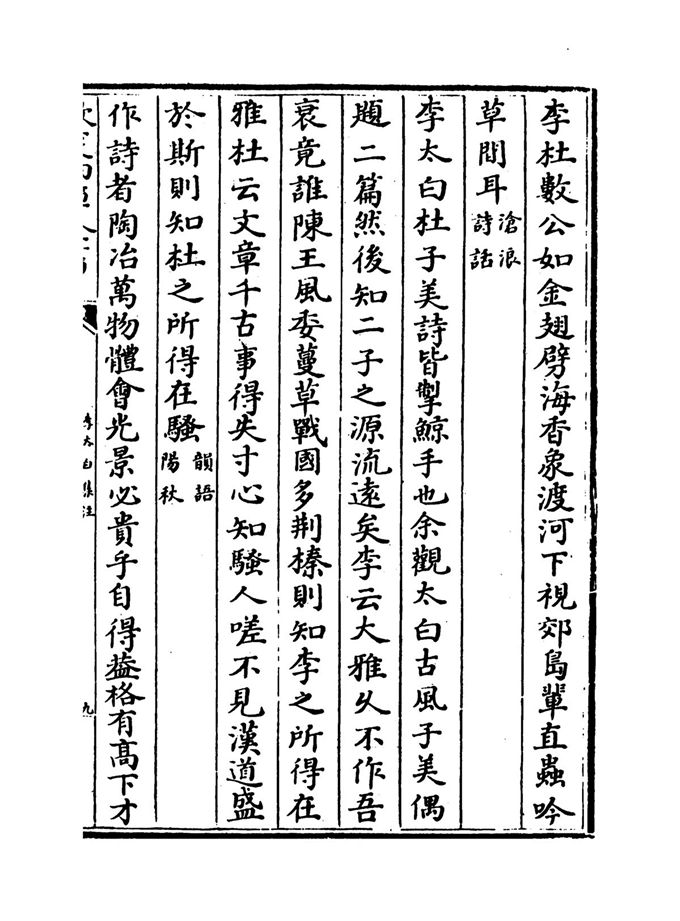 李杜數公如金翅劈海香象渡河下視郊島輩直蟲吟
草間耳滄浪詩話
李太白杜子美詩皆掣鯨手也余觀太白古風子美偶
題二篇然後知二子之源流遠矣李云大雅久不作吾
衰竟誰陳王風委蔓草戰國多荆榛則知李之所得在
雅杜云文章千古事得失寸心知騷人嗟不見漢道盛
於斯則知杜之所得在騷韻語陽秋
作詩者陶冶萬物體會光景必貴乎自得葢格有高下才
李太白集注
九